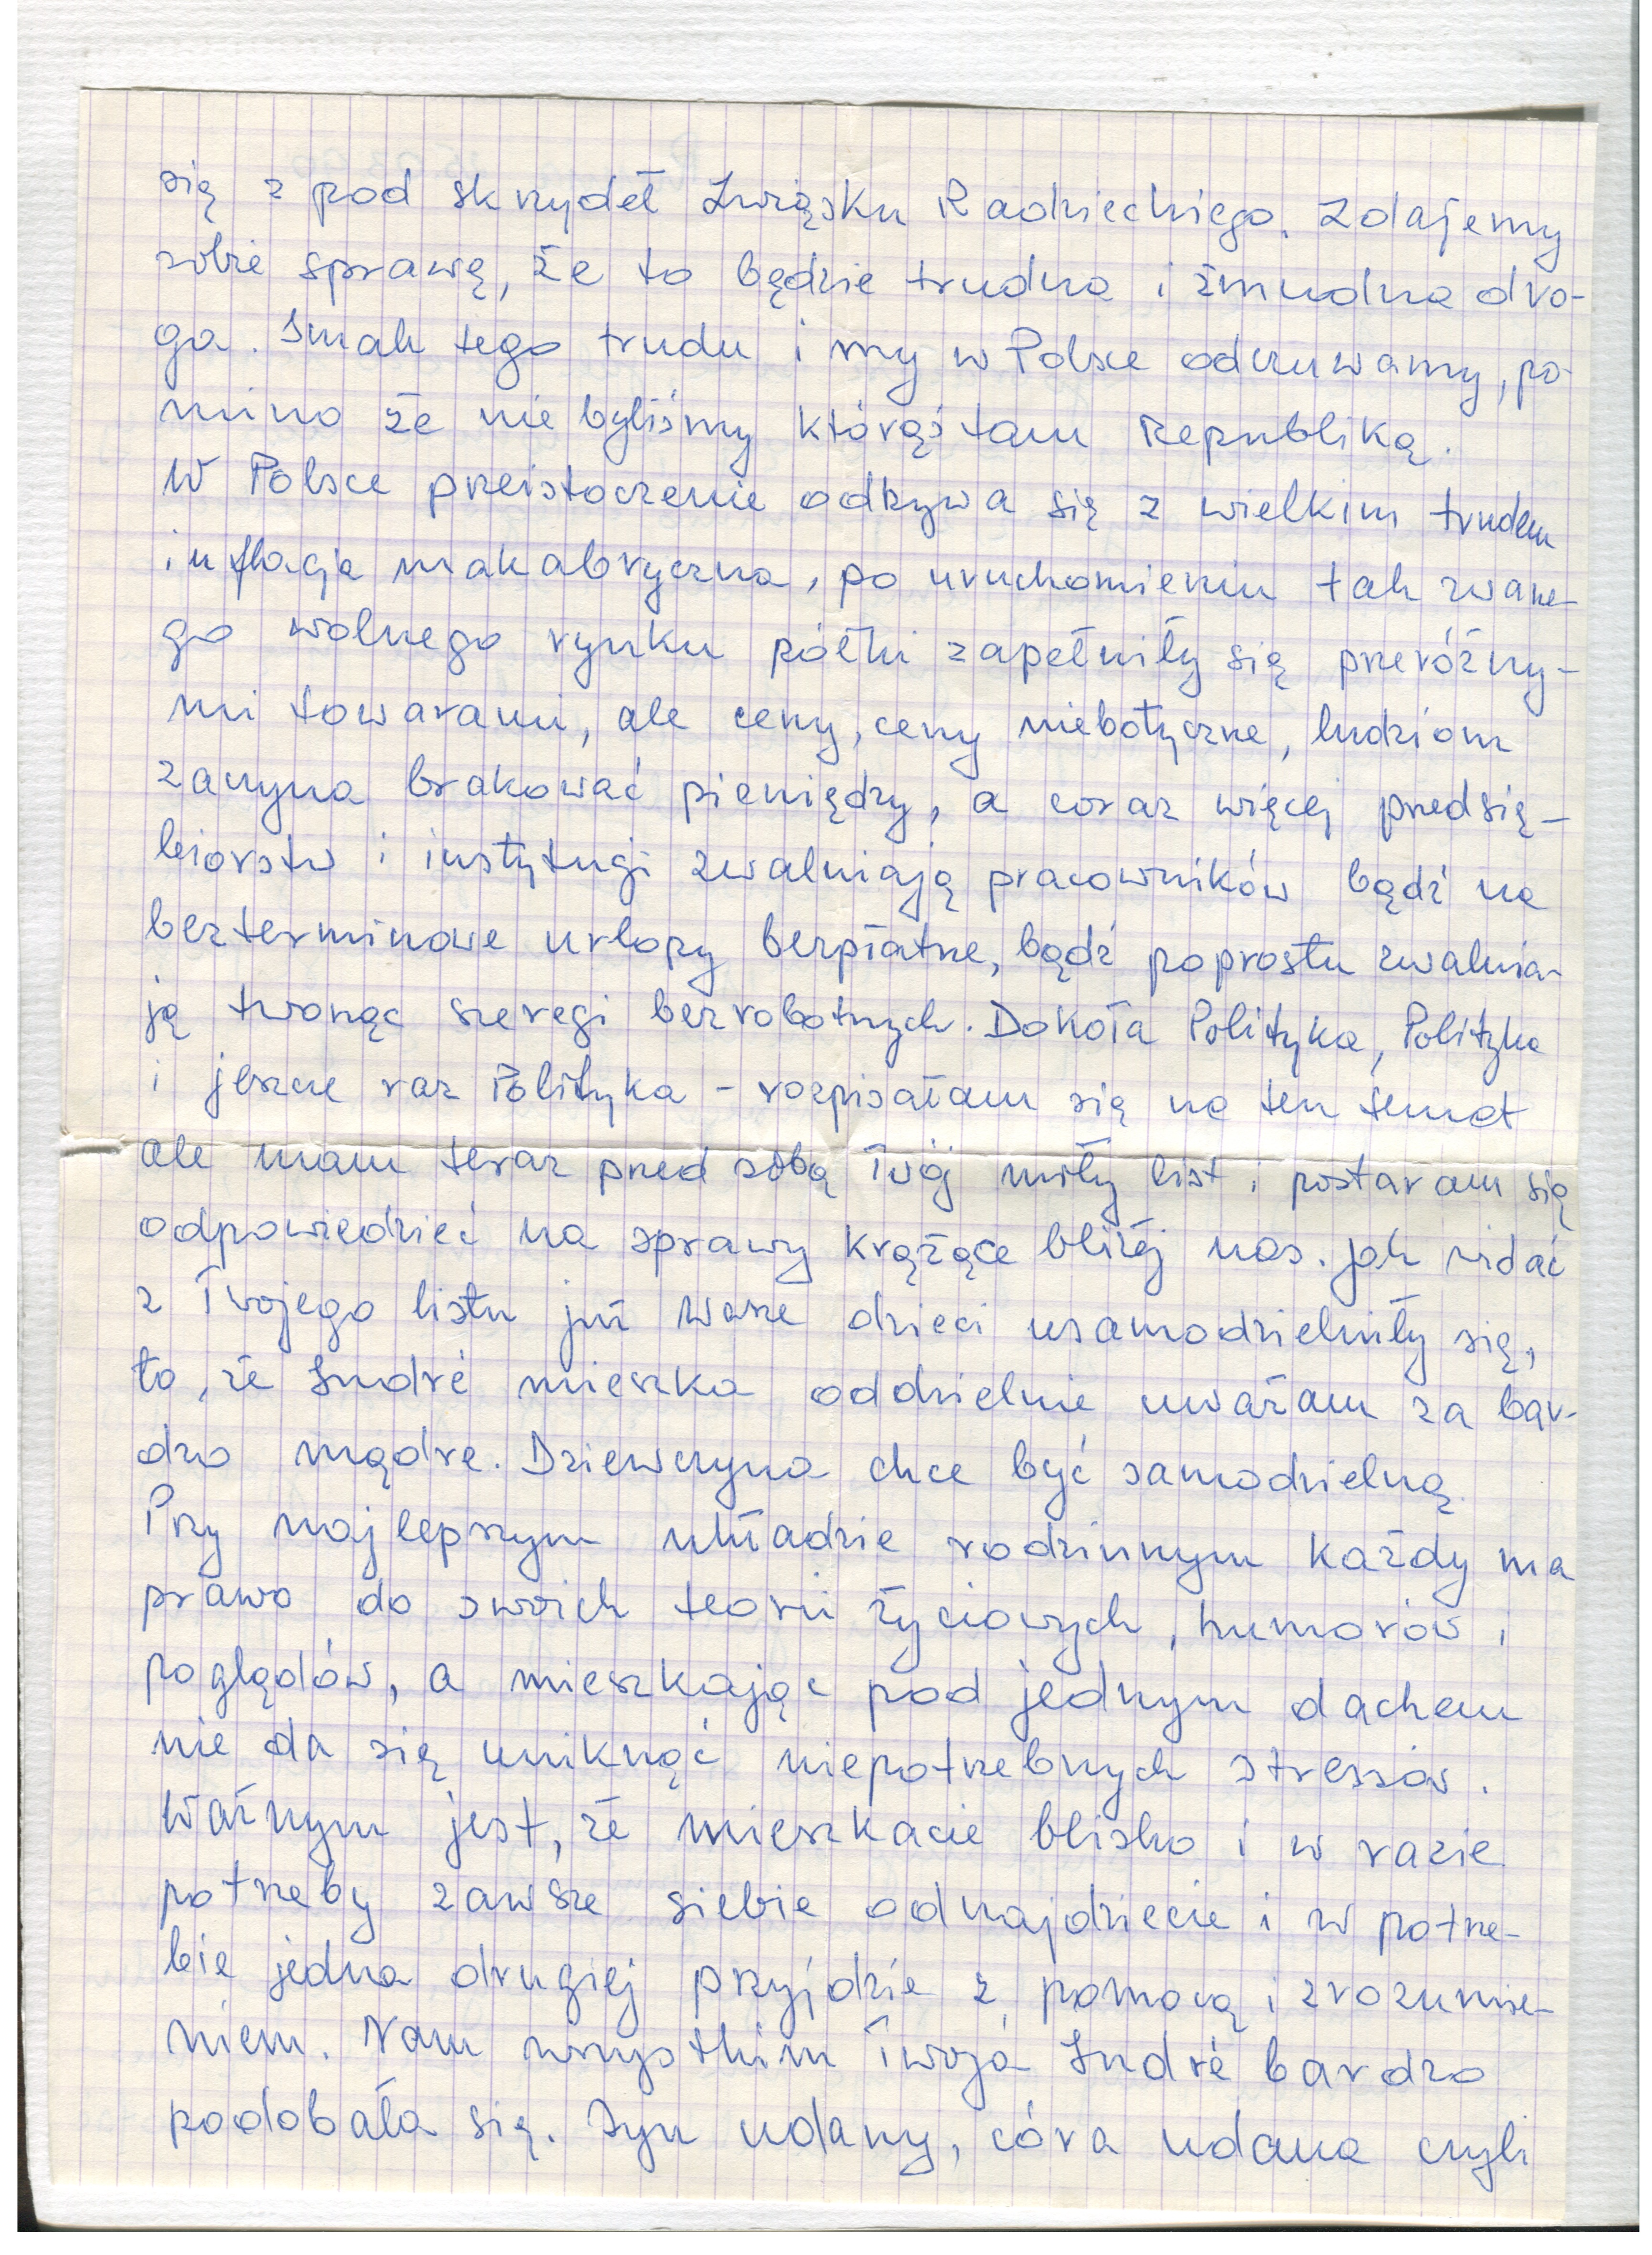 się z pod skrzydeł Związku Radzieckiego. Zdajemy
sobie sprawę, że to będzie trudna i żmudna dro-
ga. Smak tego trudu i my w Polsce odczuwamy, po-
mimo że nie byliśmy którąś tam Republiką.
W Polsce przeistoczenie odbywa się z wielkim trudem
inflacja makabryczna, po uruchomieniu tak zwane-
go wolnego rynku półki zapełniły się przeróżny-
mi towarami, ale ceny, ceny niebotyczne, ludziom
zaczyna brakować pieniędzy, a coraz więcej przedsię-
biorstw i instytucji zwalniają pracowników bądź na
bezterminowe urlopy bezpłatne, bądź poprostu zwalnia-
ją tworząc szeregi bezrobotnych. Dokoła Polityka, Polityka
i jeszcze raz Polityka - rozpisałam się na ten temat
ale mam teraz przed sobą Twój miły list i postaram się
odpowiedzieć na sprawy krążące bliżej nas. Jak widać
z Twojego listu już Wasze dzieci usamodzielniły się,
to, że Indrė mieszka oddzielnie uważam za bar-
dzo mądre. Dziewczyna chce być samodzielną.
Przy najlepszym układzie rodzinnym każdy ma
prawo do swoich teorii życiowych, humorów i
poglądów, a mieszkając pod jednym dachem
nie da się uniknąć niepotrzebnych stressów.
Ważnym jest, że mieszkacie blisko i w razie
potrzeby zawsze siebie odnajdziecie i w potrze-
bie jedna drugiej przyjdzie z pomocą i zrozumie-
niem. Nam wszystkim Twoja Indrė bardzo
podobała się. Syn udany, córa udana czyli